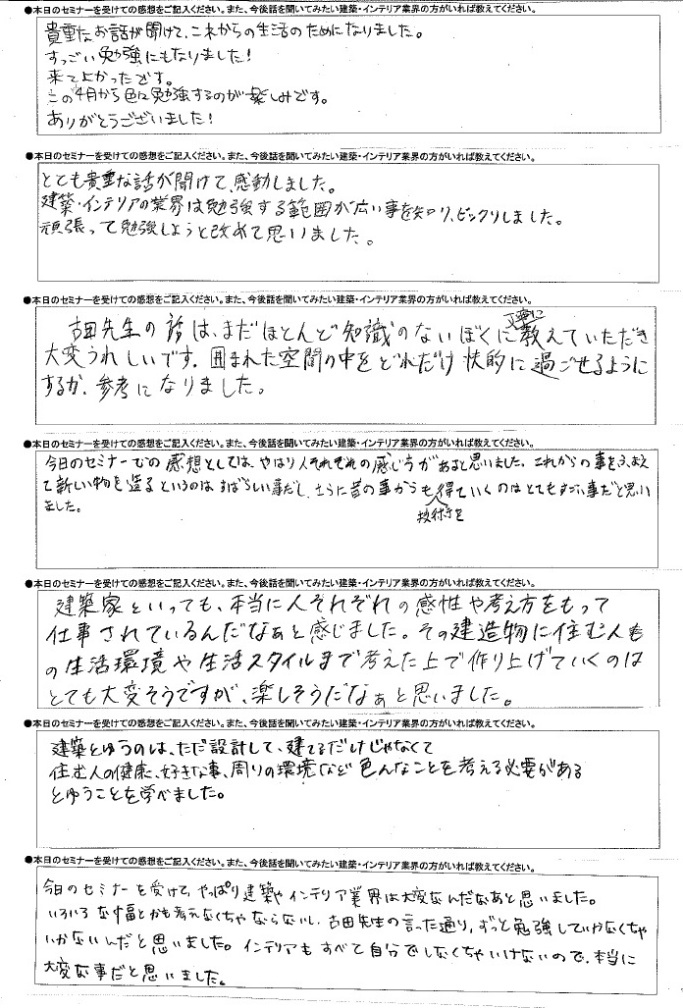 ●本日のセミナーを受けての感想をご記入ください。また、今後話を聞いてみたい建築・インテリア業界の方がいれば教えてください。
貴重なお話が聞けて、これからの生活のためになりました。
すっごい勉強にもなりました！
来てよかったです。
この4月から色に勉強するのが楽しみです。
ありがとうございました！
●本日のセミナーを受けての感想をご記入ください。また、今後話を聞いてみたい建築・インテリア業界の方がいれば教えてください。
とても貴重な話が聞けて、感動しました。
建築・インテリアの業界は勉強する範囲が広い事を知り、ビックリしました。
頑張って勉強しようと改めて思いました。
●本日のセミナーを受けての感想をご記入ください。また、今後話を聞いてみたい建築・インテリア業界の方がいれば教えてください。
古田先生の話は、まだほとんど知識のないぼくに丁寧に教えていただき
大変うれしいです。囲まれた空間の中をどれだけ快的に過ごせるように
するか、参考になりました。
●本日のセミナーを受けての感想をご記入ください。また、今後話を聞いてみたい建築・インテリア業界の方がいれば教えてください。
今日のセミナーでの感想としては、やはり人それぞれの感じ方があると思いました。これからの事をふまえ
て新しい物を造るというのはすばらしい事だし、さらに昔の事からも技術を得ていくのはとてもすごい事だと思い
ました。
●本日のセミナーを受けての感想をご記入ください。また、今後話を聞いてみたい建築・インテリア業界の方がいれば教えてください。
建築家といっても、本当に人それぞれの感性や考え方をもって
仕事されているんだなぁと感じました。その建造物に住む人も
の生活環境や生活スタイルまで考えた上で作り上げていくのは
とても大変そうですが、楽しそうだなぁと思いました。
●本日のセミナーを受けての感想をご記入ください。また、今後話を聞いてみたい建築・インテリア業界の方がいれば教えてください。
建築とゆうのは、ただ設計して、建てるだけじゃなくて
住む人の健康、好きな事、周りの環境など色んなことを考える必要がある
とゆうことを学べました。
●本日のセミナーを受けての感想をご記入ください。また、今後話を聞いてみたい建築・インテリア業界の方がいれば教えてください。
今日のセミナーを受けて、やっぱり建築やインテリア業界は大変なんだなあと思いました。
いろいろな幅とかも考えなくちゃならないし、古田先生の言った通り、ずっと勉強していかなくちゃ
いかないんだと思いました。インテリアもすべて自分でしなくちゃいけないので、本当に
大変な事だと思いました。